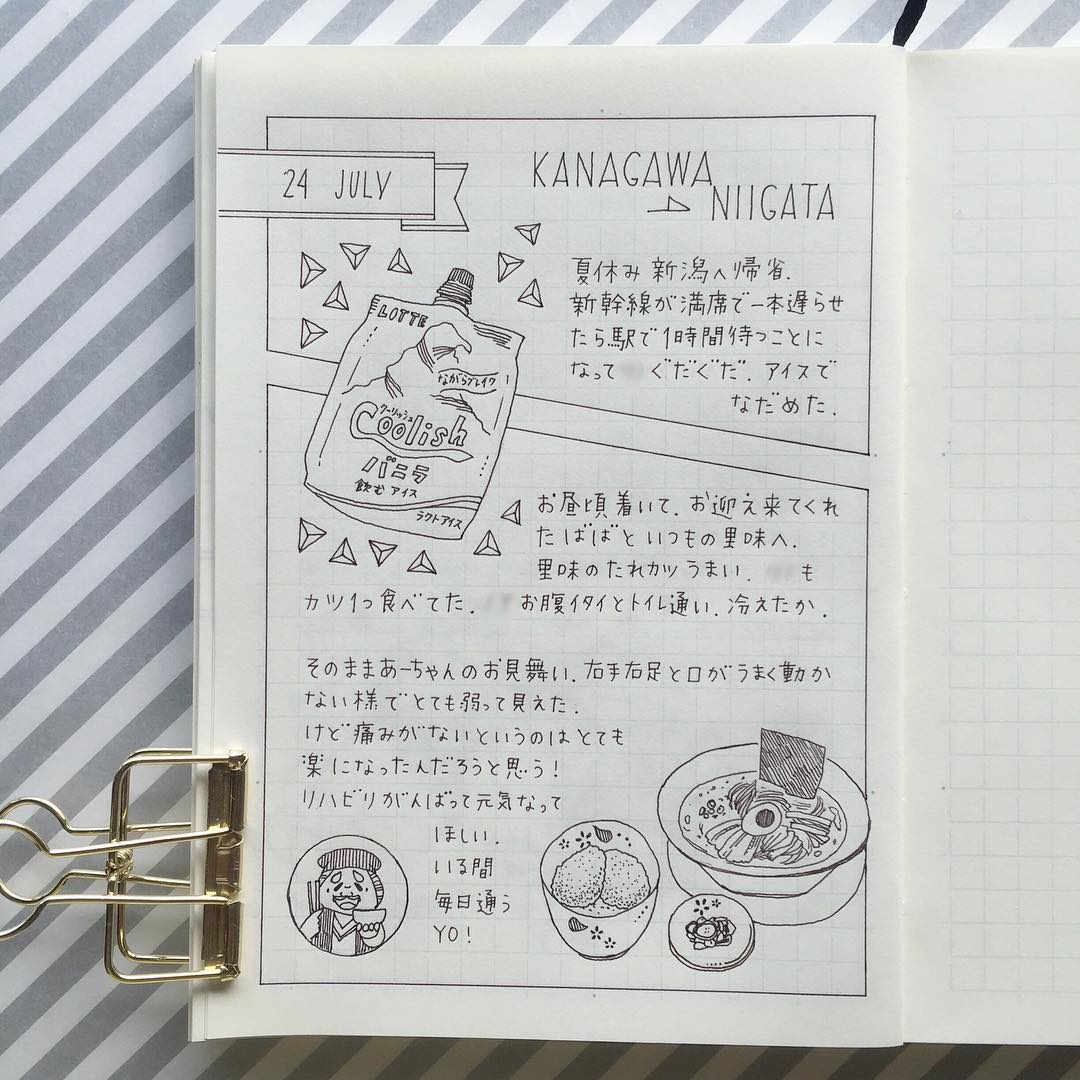 24 JULY
KANAGAWA
NIIGATA
夏休み 新潟へ帰省.
新幹線が満席で一本遅らせ
たら駅で1時間待つことに
なって ぐだぐだ. アイスで
なだめた.
LOTTE
ながらブレイク
クーリッシュ
Coolish
バニラ
飲むアイス
ラクトアイス
お昼頃着いて. お迎え来てくれ
たばばといつもの里味へ.
里味のたれカツうまい. も
カツ1つ食べてた. お腹イタイとトイレ通い. 冷えたか.
そのままあーちゃんのお見舞い. 右手右足と口がうまく動か
ない様でとても弱って見えた.
けど痛みがないというのはとても
楽になったんだろうと思う!
リハビリがんばって元気なって
ほしい.
いる間
毎日通う
YO!